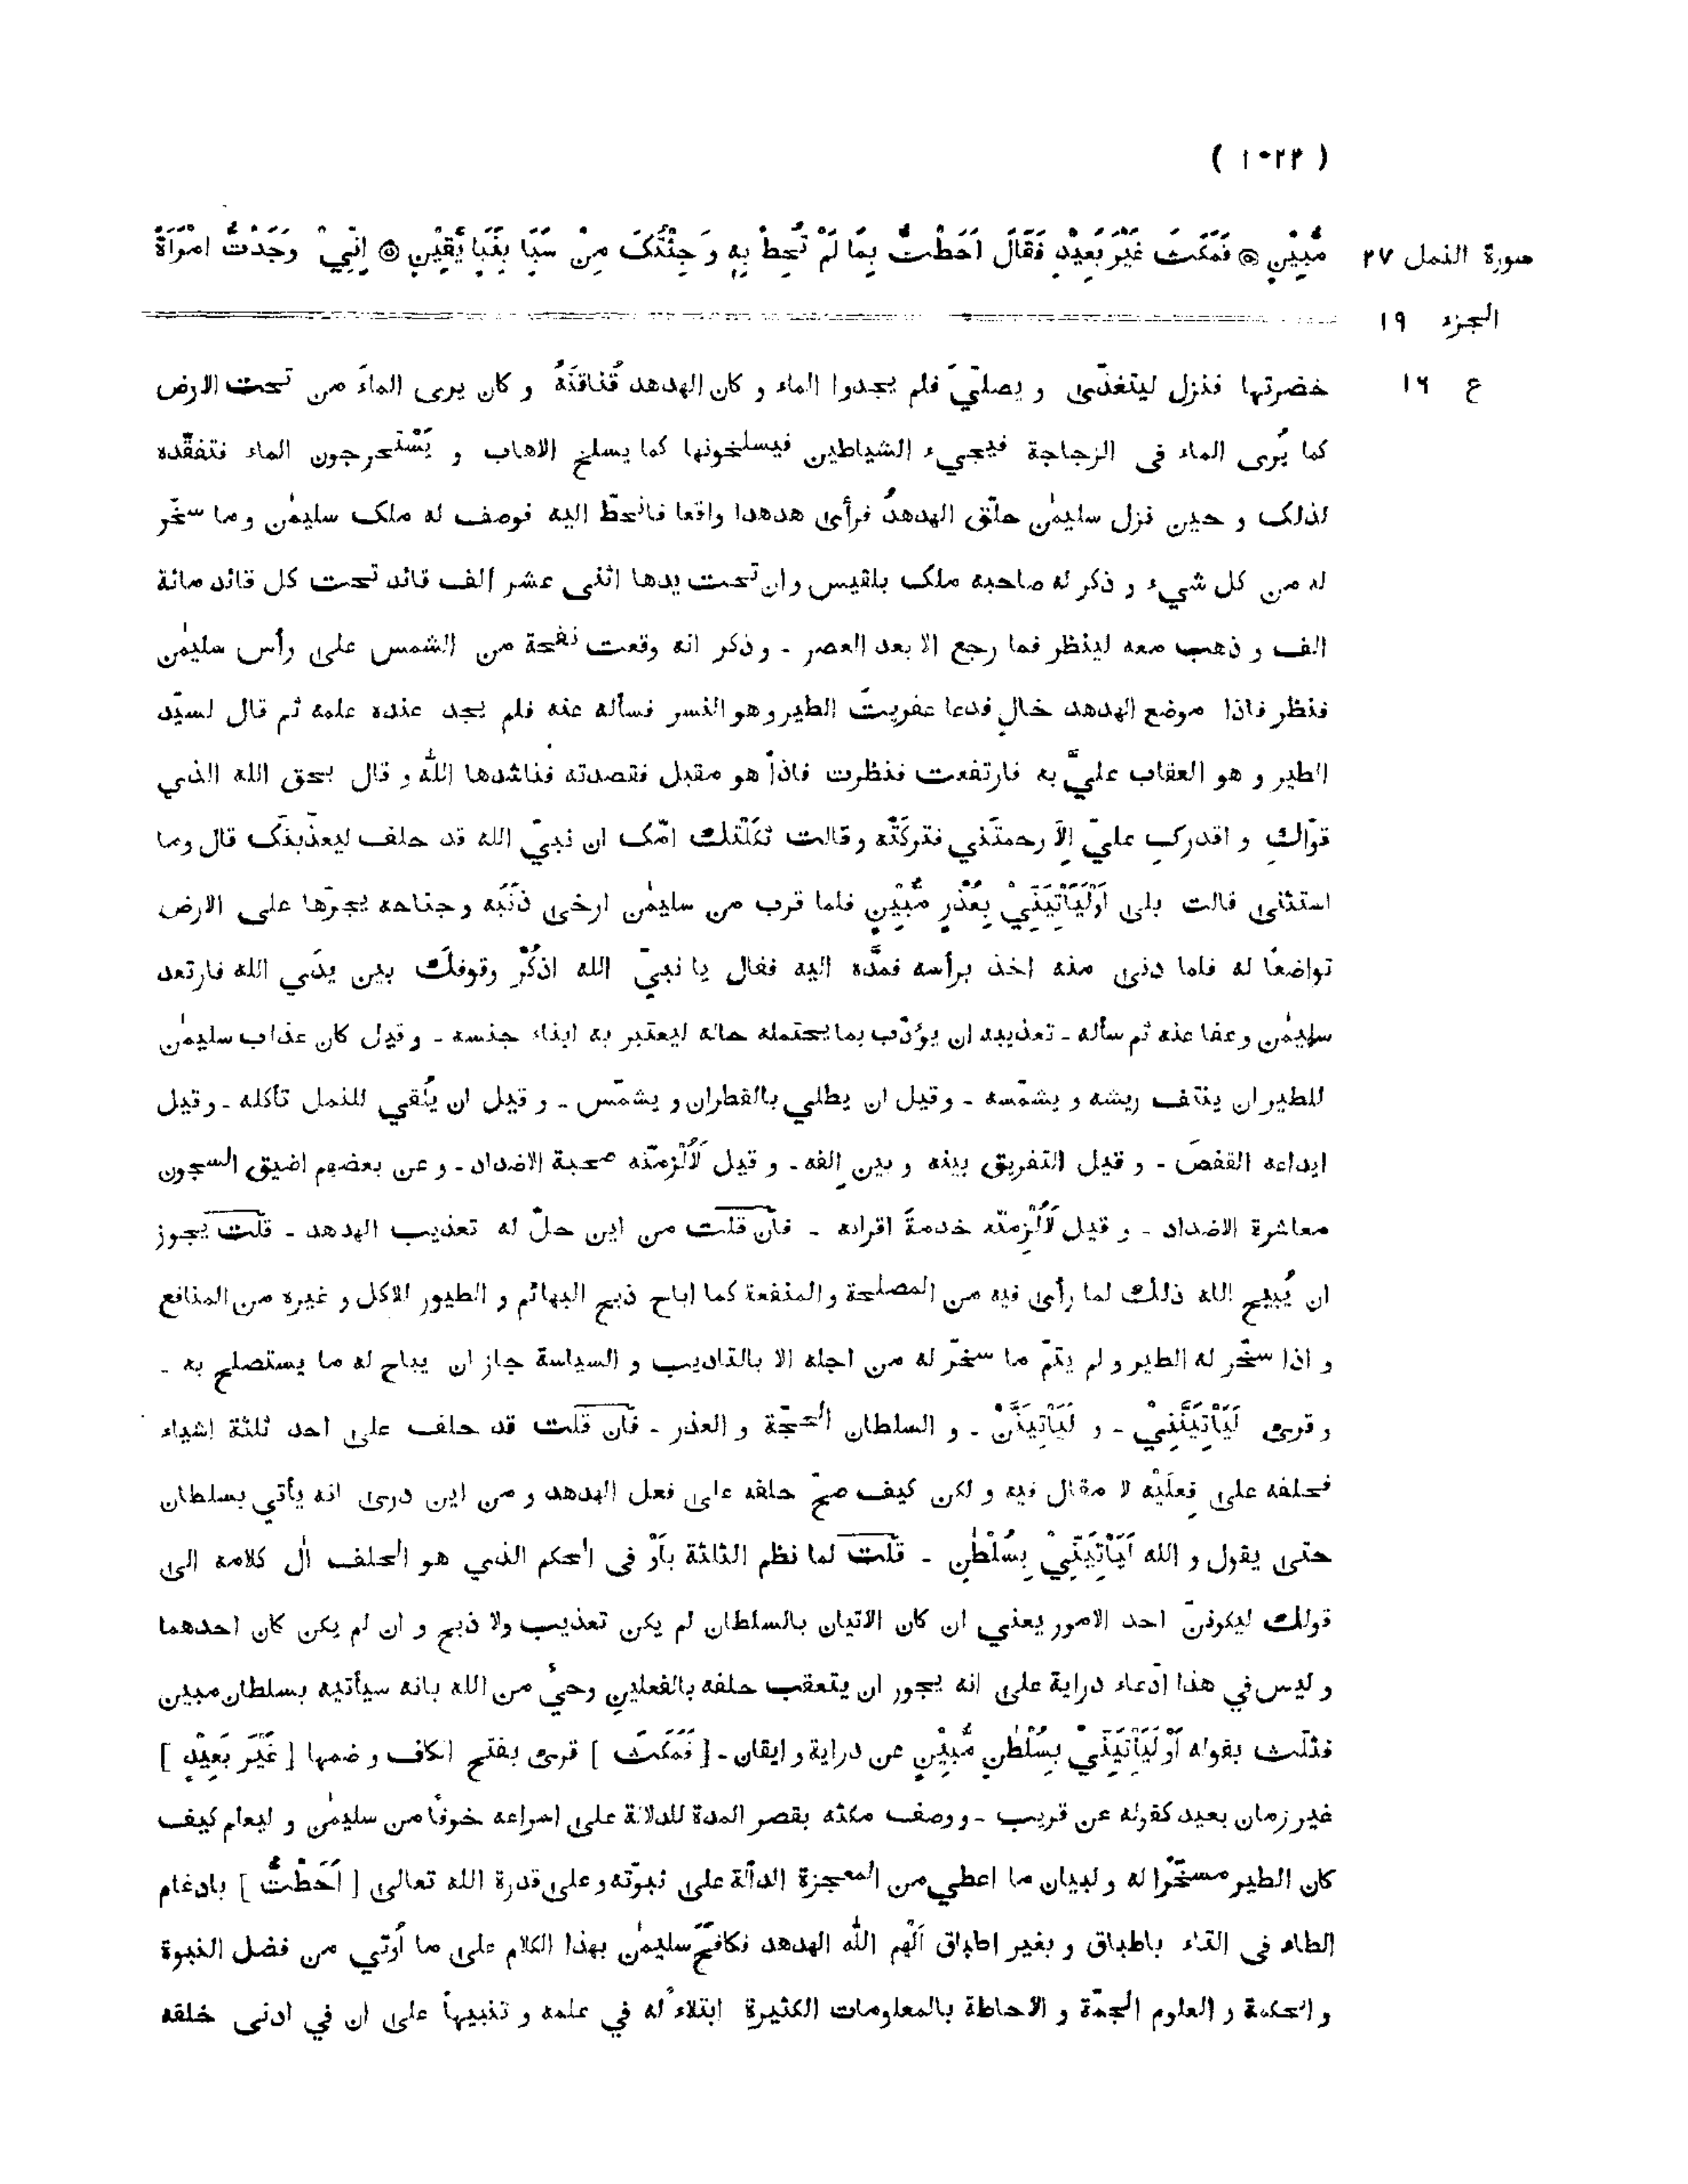 ( ١٠٢٣ )
سورة النمل ٢٧
الجزء ١٩
ع ١٦
مُّبِيْنٍ ۞ فَمَكَثَ غَيْرَ بَعِيْدٍ فَقَالَ اَحَطْتُّ بِمَا لَمْ تُحِطْ بِهٖ وَ جِئْتُكَ مِنْ سَبَاٍ بِنَبَاٍ يَّقِيْنٍ ۞ اِنِّيْ وَجَدْتُّ امْرَاَةً
خضرتها فنزل ليتغدّى و يصلّيَ فلم يجدوا الماء و كان الهدهد قُناقنَهُ و كان يرى الماءَ من تحت الارض
كما يُرى الماء فى الزجاجة فيجيء الشياطين فيسلخونها كما يسلخ الاهاب و يَسْتخرجون الماء فتفقّده
لذلك و حين نزل سليمٰن حلّق الهدهدُ فرأى هدهدا واقعا فانحطّ اليه فوصف له ملك سليمٰن و ما سخّر
له من كل شيء و ذكر له صاحبه ملك بلقيس وان تحت يدها اثنى عشر الف قائد تحت كل قائد مائة
الف و ذهب معه لينظر فما رجع الا بعد العصر ـ و ذكر انه وقعت نفحة من الشمس على رأس سليمٰن
فنظر فاذا موضع الهدهد خالٍ فدعا عفريتَ الطير و هو النسر فسأله عنه فلم يجد عنده علمه ثم قال لسيّد
الطير و هو العقاب عليَّ به فارتفعت فنظرت فاذا هو مقبل فقصدته فناشدها اللّٰهَ و قال بحق الله الذي
قوّاكِ و اقدركِ عليّ اِلّا رحمتَني فتركَتْه و قالت ثكلَتْك امّك ان نبيّ الله قد حلف ليعذّبنّك قال وما
استثنى قالت بلى اَوْلَيَأْتِيَنِّيْ بِعُذْرٍ مُّبِيْنٍ فلما قرب من سليمٰن ارخى ذَنَبَه و جناحه يجرّها على الارض
تواضعًا له فلما دنى منه اخذ برأسه فمدَّه اليه فقال يا نبيّ الله اذكُرْ وقوفك بين يدَي الله فارتعد
سليمٰن و عفا عنه ثم سأله ـ تعذيبه ان يؤدّب بما يحتمله حاله ليعتبر به ابناء جنسه ـ و قيل كان عذاب سليمٰن
للطير ان ينتف ريشه و يشمّسه ـ و قيل ان يطلي بالقطران و يشمّس ـ و قيل ان يُلقي للنمل تأكله ـ و قيل
ايداعه القفصَ ـ و قيل التفريق بينه و بين اِلفه ـ و قيل لَاُلْزِمنّه صحبة الاضداد ـ و عن بعضهم اضيق السجون
معاشرة الاضداد ـ و قيل لَاُلْزِمنّه خدمةَ اقرانه ـ فان قلت من اين حلّ له تعذيب الهدهد ـ قلت يجوز
ان يُبيح الله ذلك لما رأى فيه من المصلحة و المنفعة كما اباح ذبح البهائم و الطيور للاكل و غيره من المنافع
و اذا سخّر له الطير و لم يتمّ ما سخّر له من اجله الا بالتاديب و السياسة جاز ان يباح له ما يستصلح به ـ
و قرئ لَيَأْتِيَنَّنِيْ ـ و لَيَأْتِيَنَّنْ ـ و السلطان الحجّة و العذر ـ فان قلت قد حلف على احد ثلثة اشياء
فحلفه على فِعلَيْه لا مقال فيه و لكن كيف صحّ حلفه على فعل الهدهد و من اين درى انه يأتي بسلطان
حتى يقول و الله لَيَأْتِيَنِّيْ بِسُلْطٰنٍ ـ قلت لما نظم الثلثة بأوْ فى الحكم الذي هو الحلف آل كلامه الى
قولك ليكوننّ احد الامور يعني ان كان الاتيان بالسلطان لم يكن تعذيب ولا ذبح و ان لم يكن كان احدهما
و ليس في هذا ادّعاء دراية على انه يجوز ان يتعقب حلفه بالفعلين وحيٌ من الله بانه سيأتيه بسلطان مبين
فثلّث بقوله اَوْ لَيَأْتِيَنِّيْ بِسُلْطٰنٍ مُّبِيْنٍ عن دراية و ايقان ـ [ فَمَكَثَ ] قرئ بفتح الكاف و ضمها [ غَيْرَ بَعِيْدٍ ]
غير زمان بعيد كقوله عن قريب ـ و وصف مكثه بقصر المدة للدلالة على اسراعه خوفًا من سليمٰن و ليعلم كيف
كان الطير مسخّرا له و لبيان ما اعطي من المعجزة الدالّة على نبوّته و على قدرة الله تعالى [ اَحَطْتُّ ] بادغام
الطاء فى التاء باطباق و بغير اطباق اَلْهم اللّٰه الهدهد فكافحَ سليمٰن بهذا الكلام على ما اُوتي من فضل النبوة
و الحكمة و العلوم الجمّة و الاحاطة بالمعلومات الكثيرة ابتلاءً له في علمه و تنبيهاً على ان في ادنى خلقه